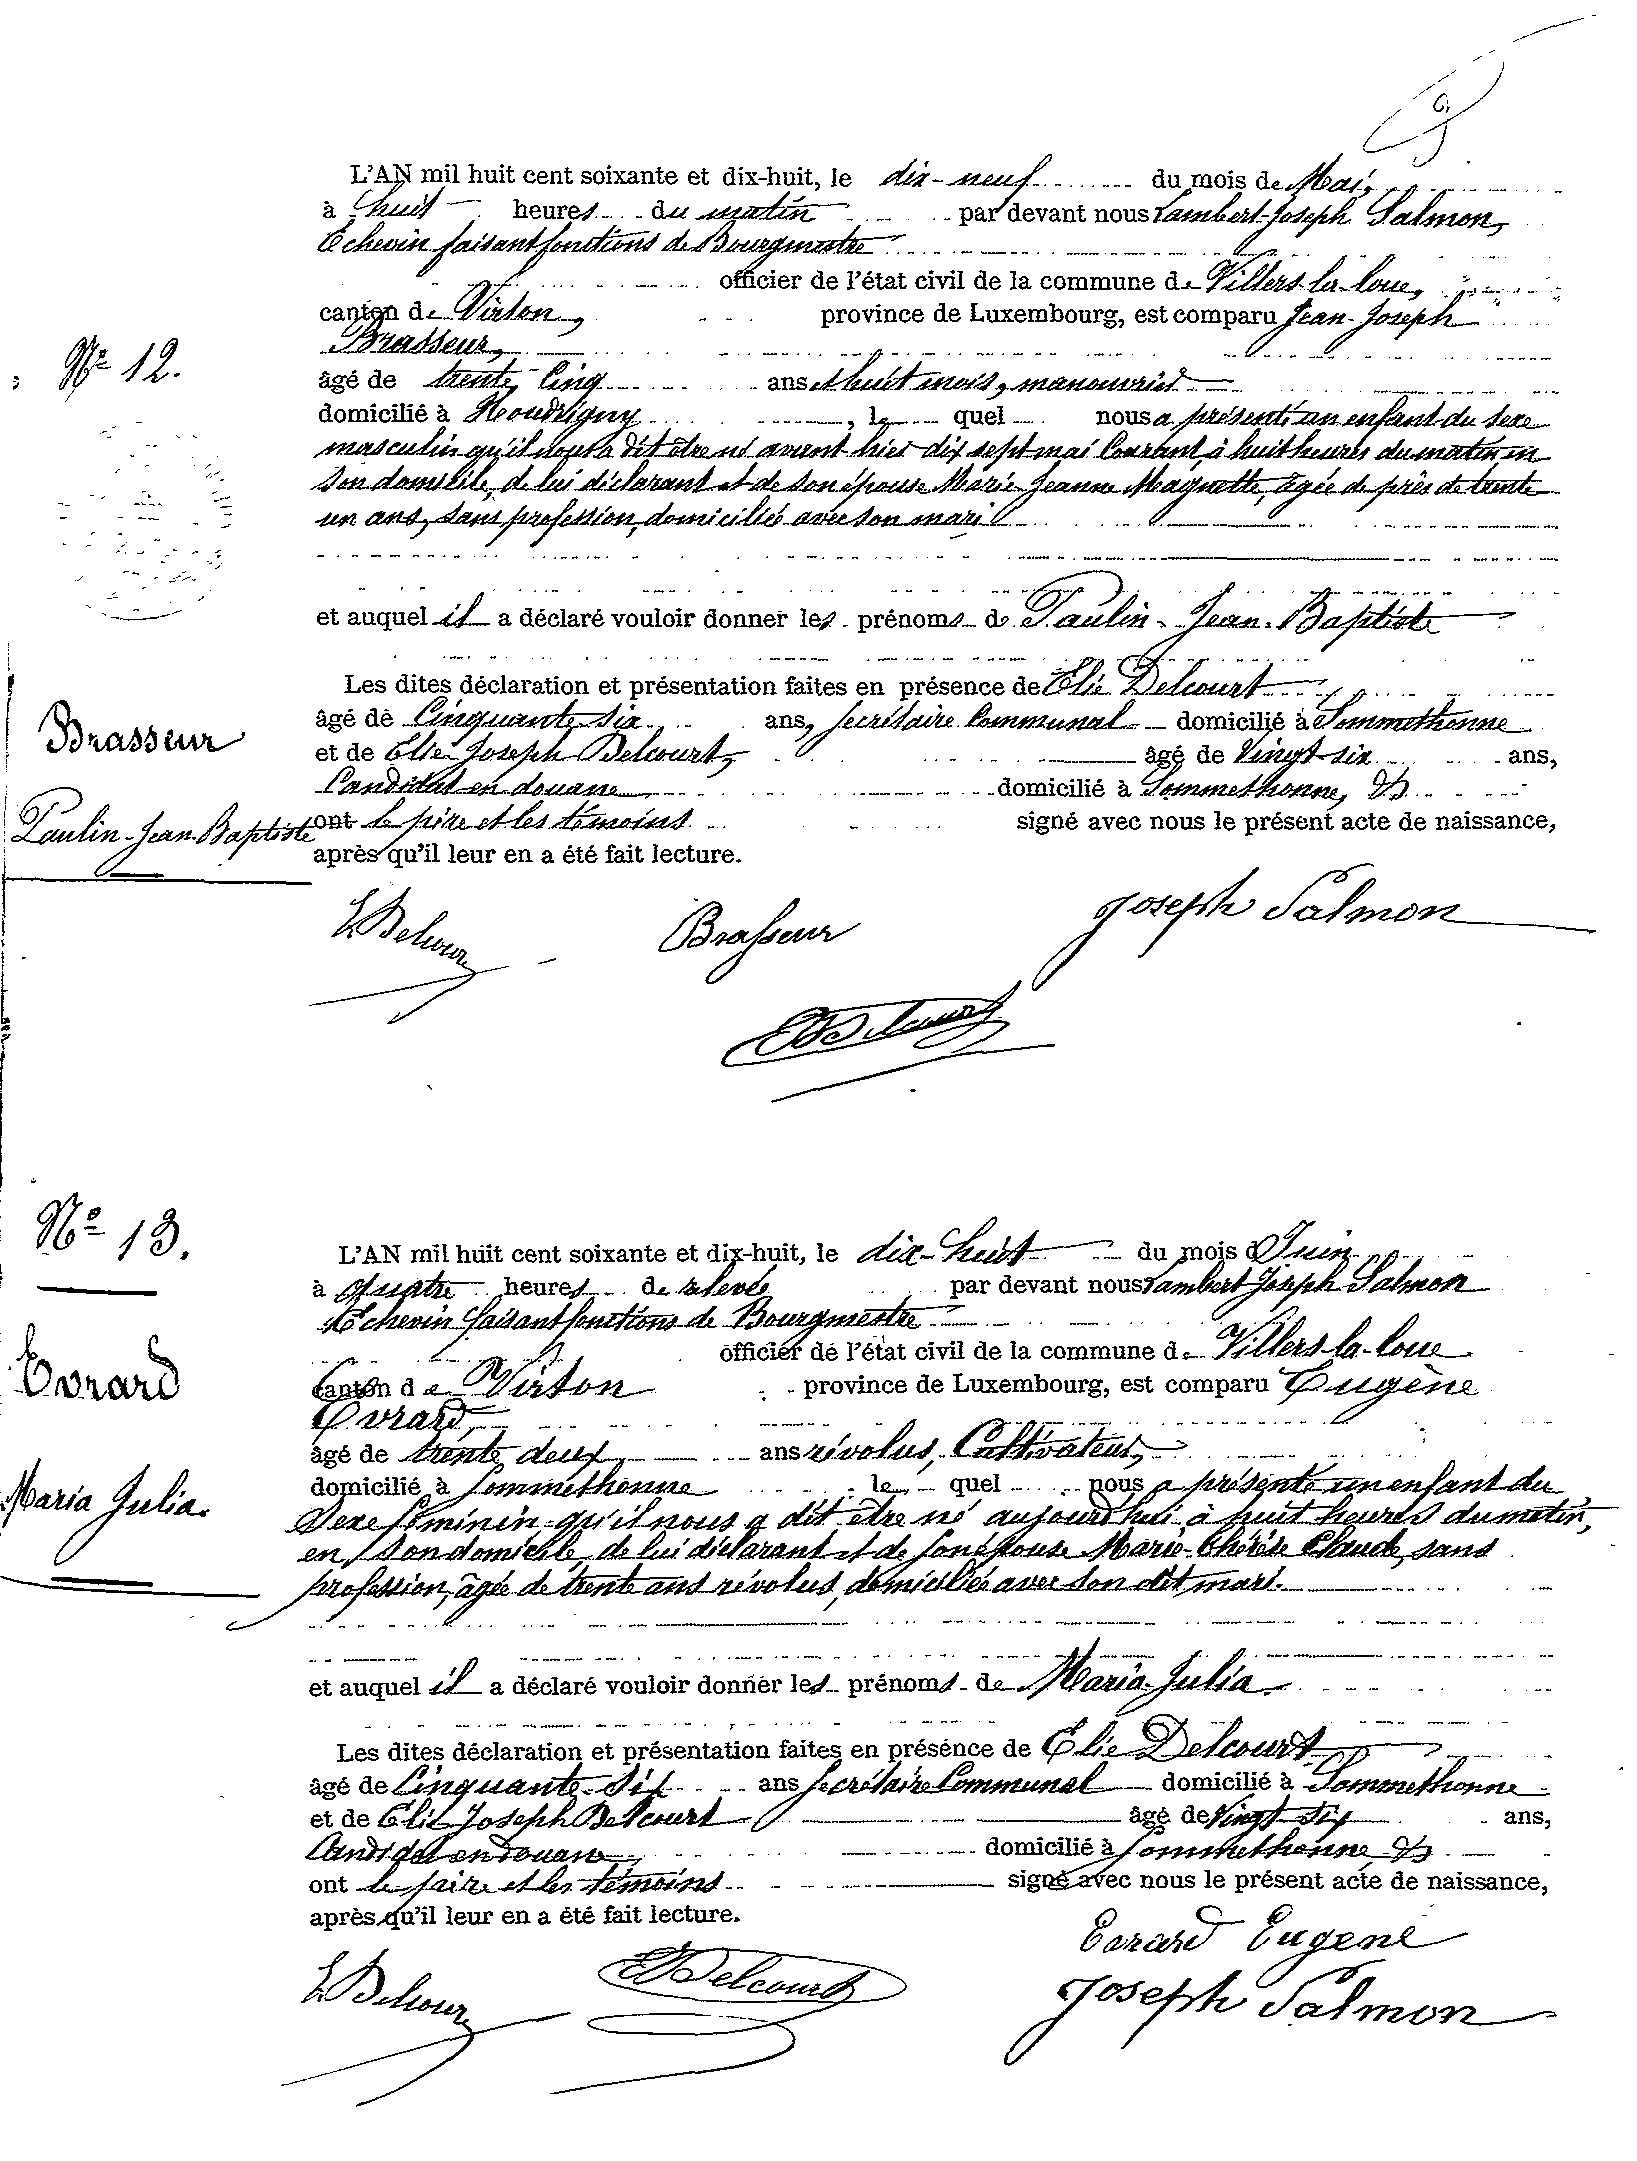 L'AN mil huit cent soixante et dix-huit, le dix-neuf du mois de Mai,
à huit heures du matin par devant nous Lambert-Joseph Salmon,
Echevin faisant fonctions de Bourgmestre
officier de l'état civil de la commune de Villers-la-loue,
canton de Virton, province de Luxembourg, est comparu Jean-Joseph
Brasseur,
Nº 12.
âgé de trente cinq ans et huit mois, manouvrier
domicilié à Houdrigny, lequel nous a présenté un enfant du sexe
masculin qu'il nous a dit être né avant hier dix sept mai Courant, à huit heures du matin en
son domicile, de lui déclarant et de son épouse Marie-Jeanne Magnette, âgée de près de trente
un ans, sans profession, domiciliée avec son mari
et auquel il a déclaré vouloir donner les prénoms de Paulin-Jean-Baptiste
Les dites déclaration et présentation faites en présence de Elie Delcourt
âgé de Cinquante-six ans, secrétaire Communal domicilié à Sommethonne
Brasseur
et de Elie-Joseph Delcourt, âgé de Vingt-six ans,
Candidat en douane domicilié à Sommethonne, &
Paulin-Jean-Baptiste
ont le père et les témoins signé avec nous le présent acte de naissance,
après qu'il leur en a été fait lecture.
E. Delcour Brasseur Joseph Salmon
E Delcourt
Nº 13.
L'AN mil huit cent soixante et dix-huit, le dix-huit du mois d Juin
à quatre heures de relevée par devant nous Lambert Joseph Salmon
Echevin faisant fonctions de Bourgmestre
officier de l'état civil de la commune de Villers-la-loue
Evrard
canton de Virton province de Luxembourg, est comparu Eugène
Evrard,
âgé de trente deux ans révolus, Cultivateur,
domicilié à Sommethonne lequel nous a présenté un enfant du
Maria Julia.
Sexe féminin qu'il nous a dit être né aujourd'hui à huit heures du matin,
en son domicile, de lui déclarant et de son épouse Marie-Thérèse Claude, sans
profession, âgée de trente ans révolus, domiciliée avec son dit mari.
et auquel il a déclaré vouloir donner les prénoms de Maria-Julia.
Les dites déclaration et présentation faites en présence de Elie Delcourt
âgé de Cinquante-Six ans Secrétaire Communal domicilié à Sommethonne
et de Elie Joseph Delcourt âgé de Vingt-Six ans,
Candidat en douane, domicilié à Sommethonne &
ont le père et les témoins signé avec nous le présent acte de naissance,
après qu'il leur en a été fait lecture.
Evrard Eugène
E. Delcour E Delcourt Joseph Salmon